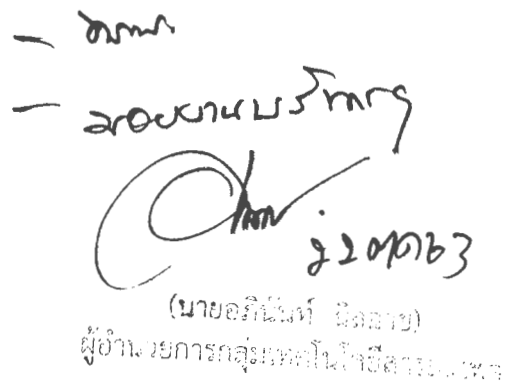 - ทราบ
- มอบงานบริหารฯ
22 ตค 63
(นายอภินันท์
ผู้อำนวยการกลุ่มเทคโนโลยีสารสนเทศ